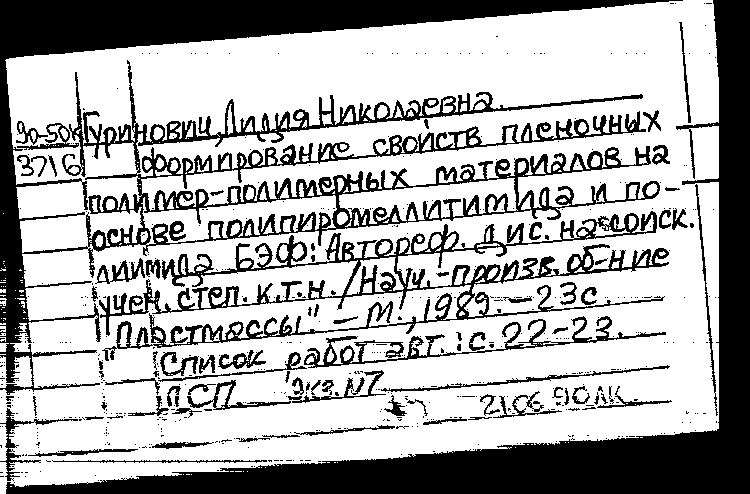 90-50к Гуринович, Лидия Николаевна.
3716 Формирование свойств пленочных
полимер-полимерных материалов на
основе полипиромеллитимида и по-
лиимида БЭФ: Автореф. дис. на соиск.
учен. степ. к.т.н. / Науч.-произв. об-ние
"Пластмассы". - М., 1989. - 23с.
Список работ авт.: с. 22-23.
ДСП Экз. №7
21.06.90 ЛК.